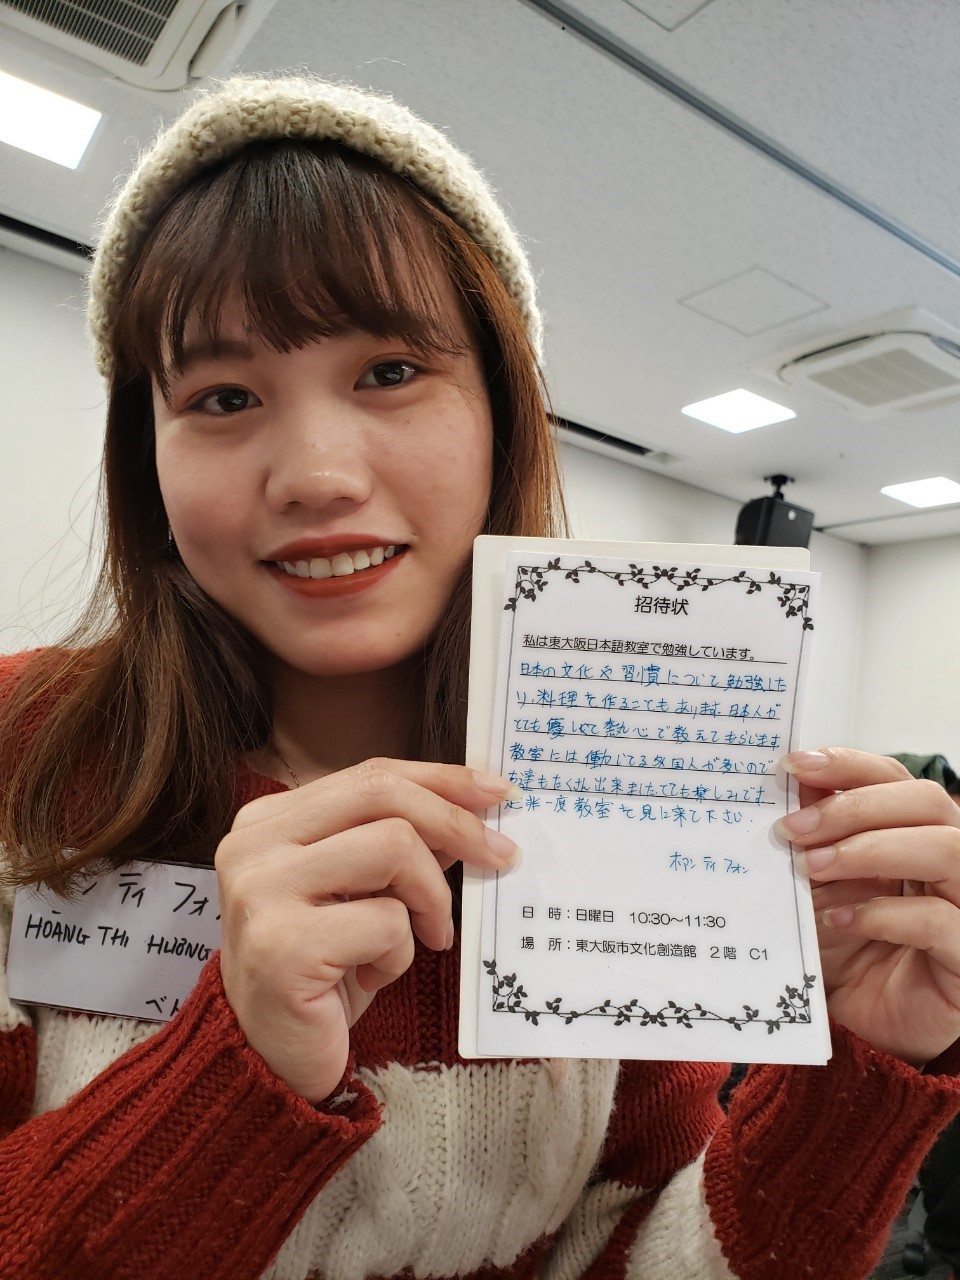 招待状
私は東大阪日本語教室で勉強しています。
日本の文化や習慣について勉強した
り、料理を作ることもあります。日本人が
とても優しくて熱心で教えてもらします
教室には働いてる外国人が多いので
友達もたくさん出来ましたとても楽しみです。
是非一度教室を見に来て下さい.
ホアン ティ フォン
日 時：日曜日 10:30～11:30
場 所：東大阪市文化創造館 2階 C1
ティ フォ
HOÀNG THI HƯƠNG
ベト